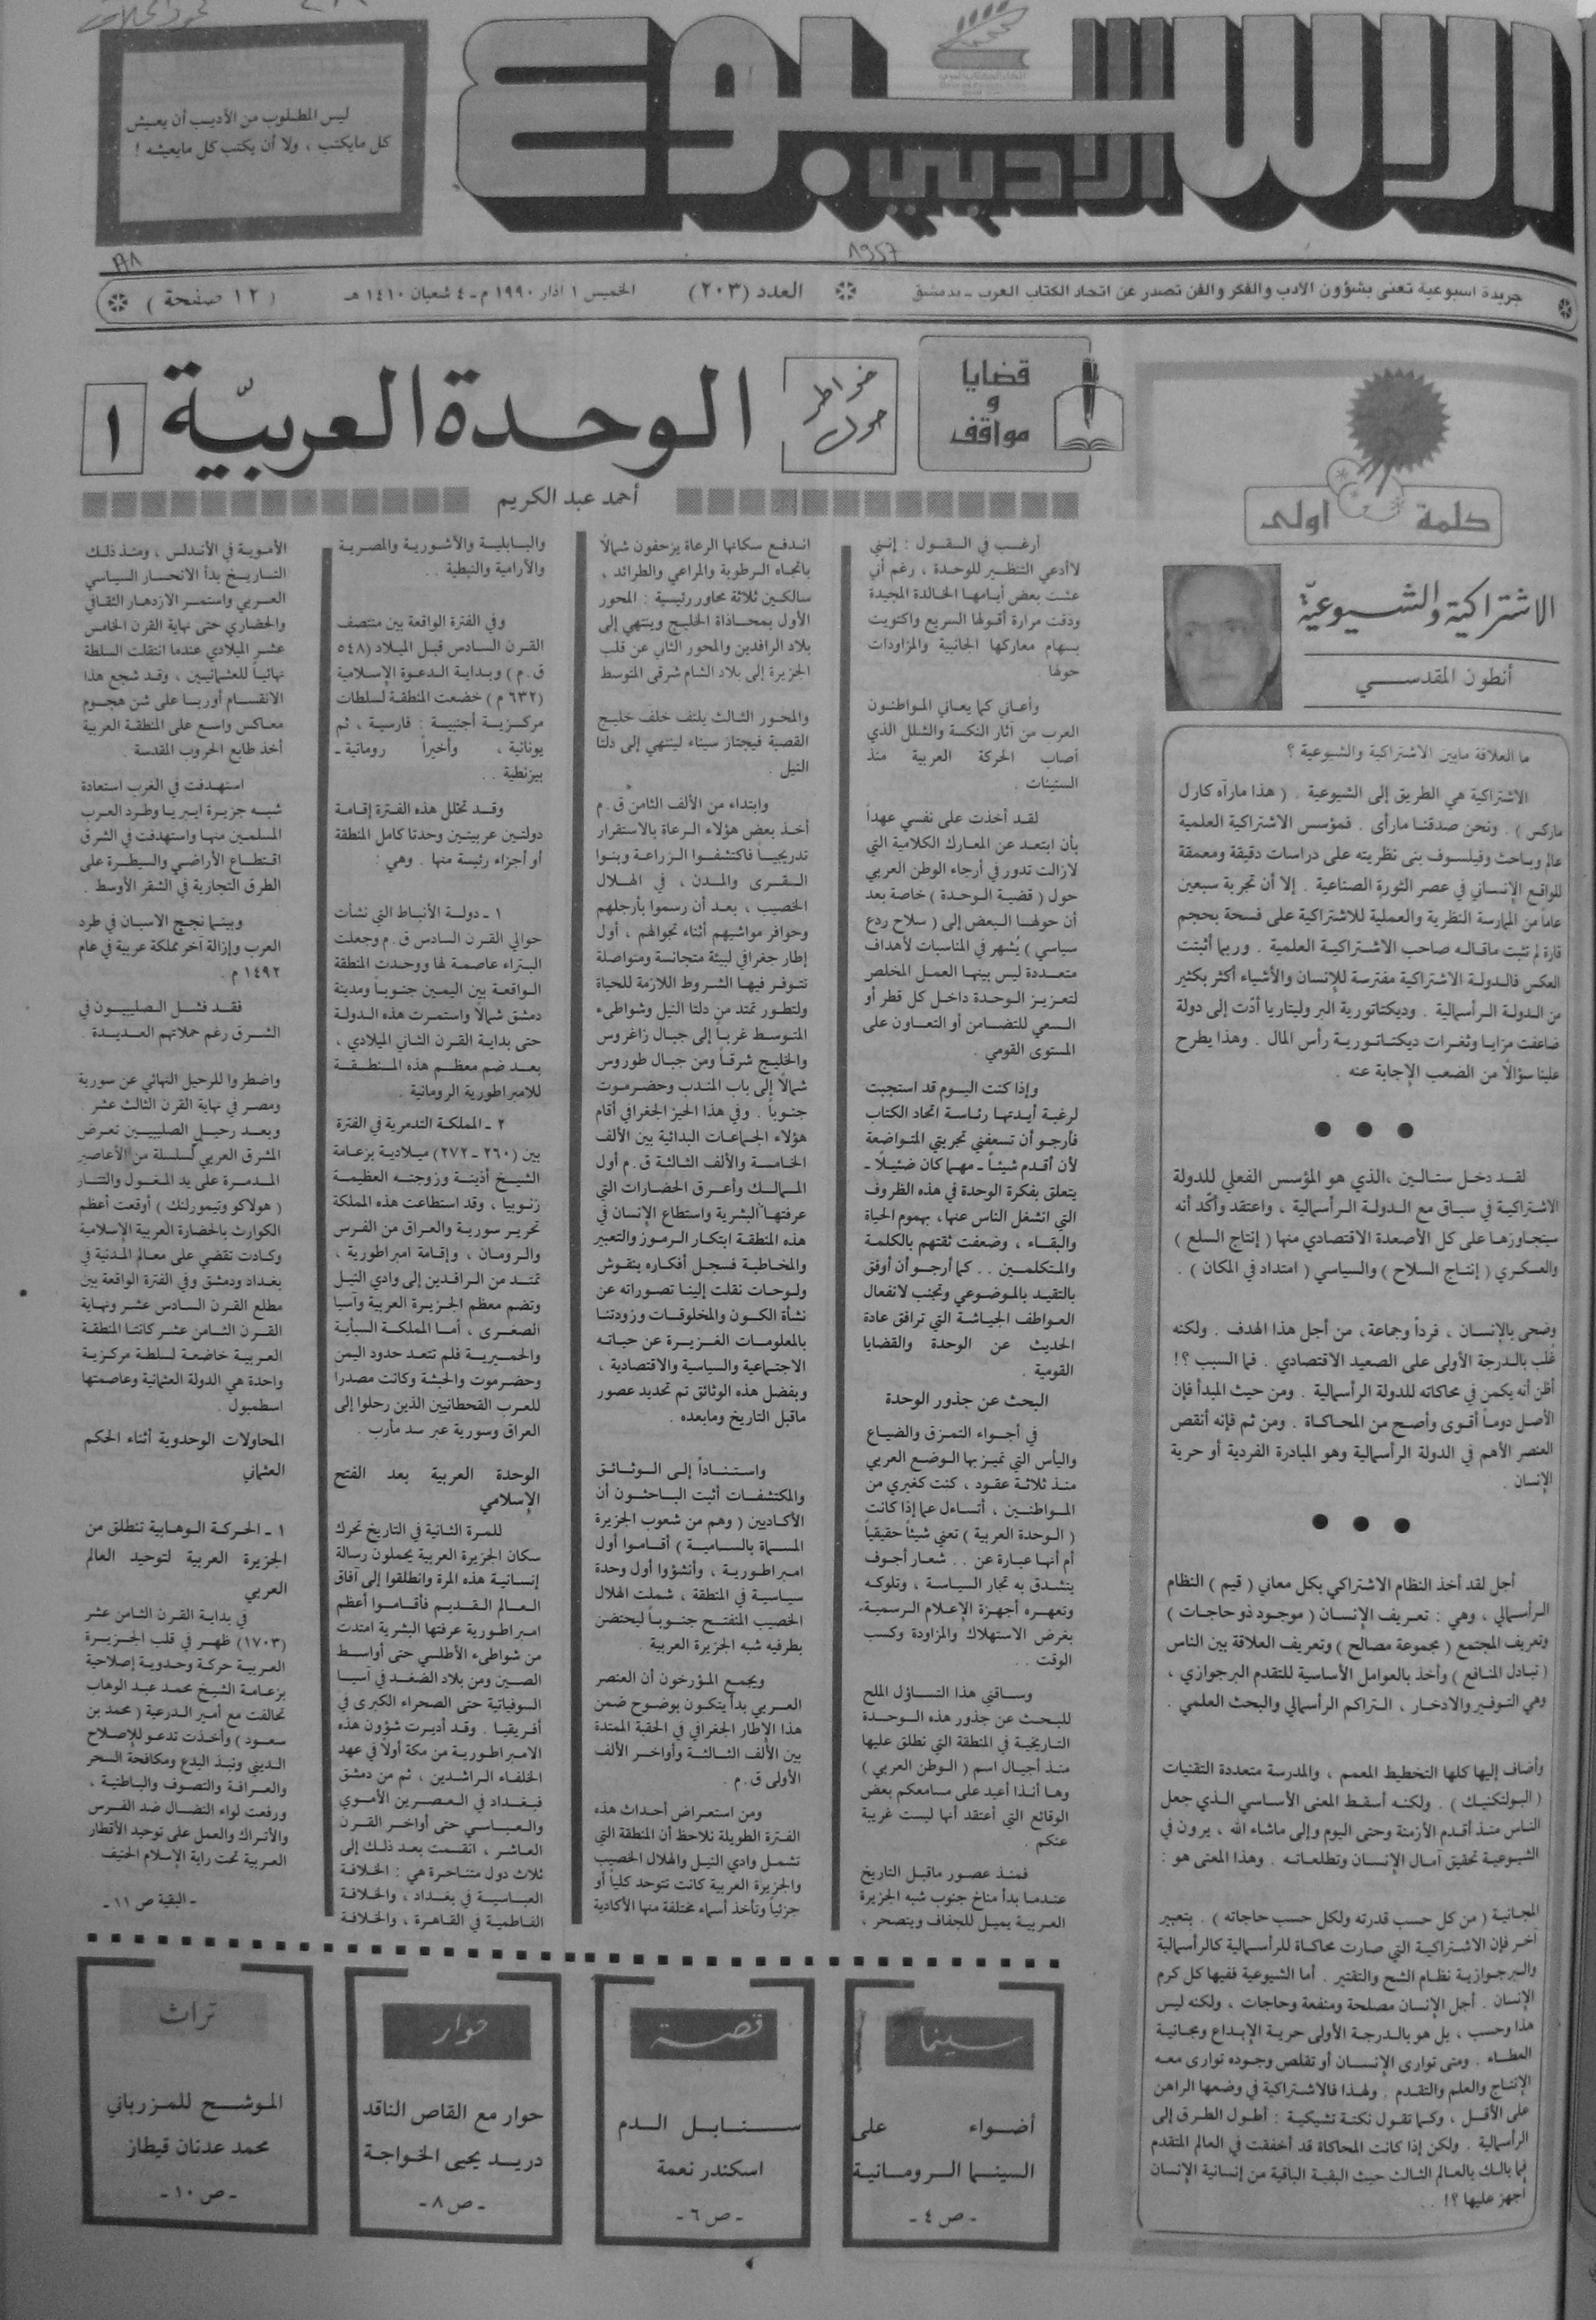 الأسبوع
الأدبي
ليس المطلوب من الأديب أن يعيش
كل مايكتب ، ولا أن يكتب كل مايعيشه !
جريدة اسبوعية تعنى بشؤون الأدب والفكر والفن تصدر عن اتحاد الكتاب العرب ـ بدمشق
العدد (٢٠٣)
الخميس ١ آذار ١٩٩٠ م ـ ٤ شعبان ١٤١٠ هـ
( ١٢ صفحة )
كلمة أولى
الاشتراكية والشيوعيّة
أنطون المقدسي
ما العلاقة مابين الاشتراكية والشيوعية ؟
الاشتراكية هي الطريق إلى الشيوعية . ( هذا مارآه كارل
ماركس ) . ونحن صدقنا مارأى . فمؤسس الاشتراكية العلمية
عالم وباحث وفيلسوف بنى نظريته على دراسات دقيقة ومعمقة
للواقع الإنساني في عصر الثورة الصناعية . إلا أن تجربة سبعين
عاماً من الممارسة النظرية والعملية للاشتراكية على فسحة بحجم
قارة لم تثبت ماقاله صاحب الاشتراكية العلمية . وربما أثبتت
العكس فالدولة الاشتراكية مفترسة للإنسان والأشياء أكثر بكثير
من الدولة الرأسمالية . وديكتاتورية البروليتاريا أدّت إلى دولة
ضاعفت مزايا وثغرات ديكتاتورية رأس المال . وهذا يطرح
علينا سؤالاً من الصعب الإجابة عنه .
لقد دخل ستالين ،الذي هو المؤسس الفعلي للدولة
الاشتراكية في سباق مع الدولة الرأسمالية ، واعتقد وأكّد أنه
سيتجاوزها على كل الأصعدة الاقتصادي منها ( إنتاج السلع )
والعسكري ( إنتاج السلاح ) والسياسي ( امتداد في المكان ) .
وضحى بالإنسان ، فرداً وجماعة، من أجل هذا الهدف . ولكنه
غُلب بالدرجة الأولى على الصعيد الاقتصادي . فما السبب ؟!
أظن أنه يكمن في محاكاته للدولة الرأسمالية . ومن حيث المبدأ فإن
الأصل دوماً أقوى وأصح من المحاكاة . ومن ثم فإنه أنقص
العنصر الأهم في الدولة الرأسمالية وهو المبادرة الفردية أو حرية
الإنسان .
أجل لقد أخذ النظام الاشتراكي بكل معاني ( قيم ) النظام
الرأسمالي ، وهي : تعريف الإنسان ( موجود ذو حاجات )
وتعريف المجتمع ( مجموعة مصالح ) وتعريف العلاقة بين الناس
( تبادل المنافع ) وأخذ بالعوامل الأساسية للتقدم البرجوازي ،
وهي التوفير والادخار ، التراكم الرأسمالي والبحث العلمي .
وأضاف إليها كلها التخطيط المعمم ، والمدرسة متعددة التقنيات
( البولتكنيك ) . ولكنه أسقط المعنى الأساسي الذي جعل
الناس منذ أقدم الأزمنة وحتى اليوم وإلى ماشاء الله ، يرون في
الشيوعية تحقيق آمال الإنسان وتطلعاته . وهذا المعنى هو :
المجانية ( من كل حسب قدرته ولكل حسب حاجاته ) . بتعبير
آخر فإن الاشتراكية التي صارت محاكاة للرأسمالية كالرأسمالية
والبرجوازية نظام الشح والتقتير . أما الشيوعية ففيها كل كرم
الإنسان . أجل الإنسان مصلحة ومنفعة وحاجات ، ولكنه ليس
هذا وحسب ، بل هو بالدرجة الأولى حرية الإبداع ومجانية
العطاء . ومتى توارى الإنسان أو تقلص وجوده توارى معه
الإنتاج والعلم والتقدم . ولهذا فالاشتراكية في وضعها الراهن
على الأقل ، وكما تقول نكتة تشيكية : أطول الطرق إلى
الرأسمالية . ولكن إذا كانت المحاكاة قد أخفقت في العالم المتقدم
فما بالك بالعالم الثالث حيث البقية الباقية من إنسانية الإنسان
أجهز عليها ؟! ..
قضايا
و
مواقف
خواطر
حول
الوحدة العربيّة
١
أحمد عبد الكريم
أرغب في القول : إنني
لاأدعي التنظير للوحدة ، رغم أني
عشت بعض أيامها الخالدة المجيدة
وذقت مرارة أفولها السريع واكتويت
بسهام معاركها الجانبية والمزاودات
حولها .
وأعاني كما يعاني المواطنون
العرب من آثار النكسة والشلل الذي
أصاب الحركة العربية منذ
الستينات .
لقد أخذت على نفسي عهداً
بأن ابتعد عن المعارك الكلامية التي
لازالت تدور في أرجاء الوطن العربي
حول ( قضية الوحدة ) خاصة بعد
أن حولها البعض إلى ( سلاح ردع
سياسي ) يُشهر في المناسبات لأهداف
متعددة ليس بينها العمل المخلص
لتعزيز الوحدة داخل كل قطر أو
السعي للتضامن أو التعاون على
المستوى القومي .
وإذا كنت اليوم قد استجبت
لرغبة أبدتها رئاسة اتحاد الكتاب
فأرجو أن تسعفني تجربتي المتواضعة
لأن أقدم شيئاً ـ مهما كان ضئيلاً ـ
يتعلق بفكرة الوحدة في هذه الظروف
التي انشغل الناس عنها، بهموم الحياة
والبقاء ، وضعفت ثقتهم بالكلمة
والمتكلمين . . كما أرجو أن أوفق
بالتقيد بالموضوعي وتجنب لانفعال
العواطف الجياشة التي ترافق عادة
الحديث عن الوحدة والقضايا
القومية .
البحث عن جذور الوحدة
في أجواء التمزق والضياع
واليأس التي تميز بها الوضع العربي
منذ ثلاثة عقود ، كنت كغيري من
المواطنين ، أتساءل عما إذا كانت
( الوحدة العربية ) تعني شيئاً حقيقياً
أم أنها عبارة عن . . شعار أجوف
يتشدق به تجار السياسة ، وتلوكه
وتعهره أجهزة الإعلام الرسمية،
بغرض الاستهلاك والمزاودة وكسب
الوقت . .
وساقني هذا التساؤل الملح
للبحث عن جذور هذه الوحدة
التاريخية في المنطقة التي نطلق عليها
منذ أجيال اسم ( الوطن العربي )
وها أنذا أعيد على مسامعكم بعض
الوقائع التي أعتقد أنها ليست غريبة
عنكم .
فمنذ عصور ماقبل التاريخ
عندما بدأ مناخ جنوب شبه الجزيرة
العربية يميل للجفاف ويتصحر ،
اندفع سكانها الرعاة يزحفون شمالاً
باتجاه الرطوبة والمراعي والطرائد ،
سالكين ثلاثة محاور رئيسية : المحور
الأول بمحاذاة الخليج وينتهي إلى
بلاد الرافدين والمحور الثاني عن قلب
الجزيرة إلى بلاد الشام شرقي المتوسط
والمحور الثالث يلتف خلف خليج
القصبة فيجتاز سيناء لينتهي إلى دلتا
النيل .
وابتداء من الألف الثامن ق.م
أخذ بعض هؤلاء الرعاة بالاستقرار
تدريجياً فاكتشفوا الزراعة وبنوا
القرى والمدن ، في الهلال
الخصيب ، بعد أن رسموا بأرجلهم
وحوافر مواشيهم أثناء تجوالهم ، أول
إطار جغرافي لبيئة متجانسة ومتواصلة
تتوفر فيها الشروط اللازمة للحياة
ولتطور تمتد من دلتا النيل وشواطىء
المتوسط غرباً إلى جبال زاغروس
والخليج شرقاً ومن جبال طوروس
شمالاً إلى باب المندب وحضرموت
جنوباً . وفي هذا الحيز الجغرافي أقام
هؤلاء الجماعات البدائية بين الألف
الخامسة والألف الثالثة ق.م أول
الممالك وأعرق الحضارات التي
عرفتها البشرية واستطاع الإنسان في
هذه المنطقة ابتكار الرموز والتعبير
والمخاطبة فسجل أفكاره بنقوش
ولوحات نقلت إلينا تصوراته عن
نشأة الكون والمخلوقات وزودتنا
بالمعلومات الغزيرة عن حياته
الاجتماعية والسياسية والاقتصادية ،
وبفضل هذه الوثائق تم تحديد عصور
ماقبل التاريخ ومابعده .
واستناداً إلى الوثائق
والمكتشفات أثبت الباحثون أن
الأكاديين ( وهم من شعوب الجزيرة
المسماة بالسامية ) أقاموا أول
امبراطورية ، وأنشؤوا أول وحدة
سياسية في المنطقة ، شملت الهلال
الخصيب المنفتح جنوباً ليحتضن
بطرفيه شبه الجزيرة العربية .
ويجمع المؤرخون أن العنصر
العربي بدأ يتكون بوضوح ضمن
هذا الإطار الجغرافي في الحقبة الممتدة
بين الألف الثالثة وأواخر الألف
الأولى ق.م .
ومن استعراض أحداث هذه
الفترة الطويلة نلاحظ أن المنطقة التي
تشمل وادي النيل والهلال الخصيب
والجزيرة العربية كانت تتوحد كلياً أو
جزئياً وتأخذ أسماء مختلفة منها الأكادية
والبابلية والأشورية والمصرية
والأرامية والنبطية . .
وفي الفترة الواقعة بين منتصف
القرن السادس قبل الميلاد (٥٤٨
ق.م ) وبداية الدعوة الإسلامية
(٦٣٢ م ) خضعت المنطقة لسلطات
مركزية أجنبية : فارسية ، ثم
يونانية ، وأخيراً رومانية ـ
بيزنطية . .
وقد تخلل هذه الفترة إقامة
دولتين عربيتين وحدتا كامل المنطقة
أو أجزاء رئيسة منها . وهي :
١ ـ دولة الأنباط التي نشأت
حوالي القرن السادس ق.م وجعلت
البتراء عاصمة لها ووحدت المنطقة
الواقعة بين اليمين جنوباً ومدينة
دمشق شمالاً واستمرت هذه الدولة
حتى بداية القرن الثاني الميلادي ،
بعد ضم معظم هذه المنطقة
للامبراطورية الرومانية .
٢ ـ المملكة التدمرية في الفترة
بين (٢٦٠ ـ ٢٧٢) ميلادية بزعامة
الشيخ أذينة وزوجته العظيمة
زنوبيا ، وقد استطاعت هذه المملكة
تحرير سورية والعراق من الفرس
والرومان ، وإقامة امبراطورية ،
تمتد من الرافدين إلى وادي النيل
وتضم معظم الجزيرة العربية وآسيا
الصغرى ، أما المملكة السبأية
والحميرية فلم تتعد حدود اليمن
وحضرموت والحبشة وكانت مصدرا
للعرب القحطانيين الذين رحلوا إلى
العراق وسورية عبر سد مأرب .
الوحدة العربية بعد الفتح
الإسلامي
للمرة الثانية في التاريخ تحرك
سكان الجزيرة العربية يحملون رسالة
إنسانية هذه المرة وانطلقوا إلى آفاق
العالم القديم فأقاموا أعظم
امبراطورية عرفتها البشرية امتدت
من شواطىء الأطلسي حتى أواسط
الصين ومن بلاد الصغد في آسيا
السوفياتية حتى الصحراء الكبرى في
أفريقيا . وقد أديرت شؤون هذه
الامبراطورية من مكة أولاً في عهد
الخلفاء الراشدين ، ثم من دمشق
فبغداد في العصرين الأموي
والعباسي حتى أواخر القرن
العاشر ، انقسمت بعد ذلك إلى
ثلاث دول متناحرة هي : الخلافة
العباسية في بغداد ، والخلافة
الفاطمية في القاهرة ، والخلافة
الأموية في الأندلس ، ومنذ ذلك
التاريخ بدأ الانحسار السياسي
العربي واستمر الازدهار الثقافي
والحضاري حتى نهاية القرن الخامس
عشر الميلادي عندما انتقلت السلطة
نهائياً للعثمانيين ، وقد شجع هذا
الانقسام أوربا على شن هجوم
معاكس واسع على المنطقة العربية
أخذ طابع الحروب المقدسة .
استهدفت في الغرب استعادة
شبه جزيرة ايبريا وطرد العرب
المسلمين منها واستهدفت في الشرق
اقتطاع الأراضي والسيطرة على
الطرق التجارية في الشقر الأوسط .
وبينما نجح الاسبان في طرد
العرب وإزالة آخر مملكة عربية في عام
١٤٩٢ م .
فقد فشل الصليبيون في
الشرق رغم حملاتهم العديدة .
واضطروا للرحيل النهائي عن سورية
ومصر في نهاية القرن الثالث عشر .
وبعد رحيل الصليبيين تعرض
المشرق العربي لسلسلة من الأعاصير
المدمرة على يد المغول والتتار
( هولاكو وتيمورلنك ) أوقعت أعظم
الكوارث بالحضارة العربية الإسلامية
وكادت تقضي على معالم المدنية في
بغداد ودمشق وفي الفترة الواقعة بين
مطلع القرن السادس عشر ونهاية
القرن الثامن عشر كانتا المنطقة
العربية خاضعة لسلطة مركزية
واحدة هي الدولة العثمانية وعاصمتها
اسطمبول .
المحاولات الوحدوية أثناء الحكم
العثماني
١ ـ الحركة الوهابية تنطلق من
الجزيرة العربية لتوحيد العالم
العربي
في بداية القرن الثامن عشر
(١٧٠٣) ظهر في قلب الجزيرة
العربية حركة وحدوية إصلاحية
بزعامة الشيخ محمد عبد الوهاب
تحالفت مع أمير الدرعية ( محمد بن
سعود ) وأخذت تدعو للإصلاح
الديني ونبذ البدع ومكافحة السحر
والعرافة والتصوف والباطنية ،
ورفعت لواء النضال ضد الفرس
والأتراك والعمل على توحيد الأقطار
العربية تحت راية الإسلام الحنيف .
ـ البقية ص ١١ ـ
سينما
أضواء على
السينما الرومانية
ـ ص ٤ ـ
قصة
سنابل الدم
اسكندر نعمة
ـ ص ٦ ـ
حوار
حوار مع القاص الناقد
دريد يحيى الخواجة
ـ ص ٨ ـ
تراث
الموشح للمرزباني
محمد عدنان قيطاز
ـ ص ١٠ ـ